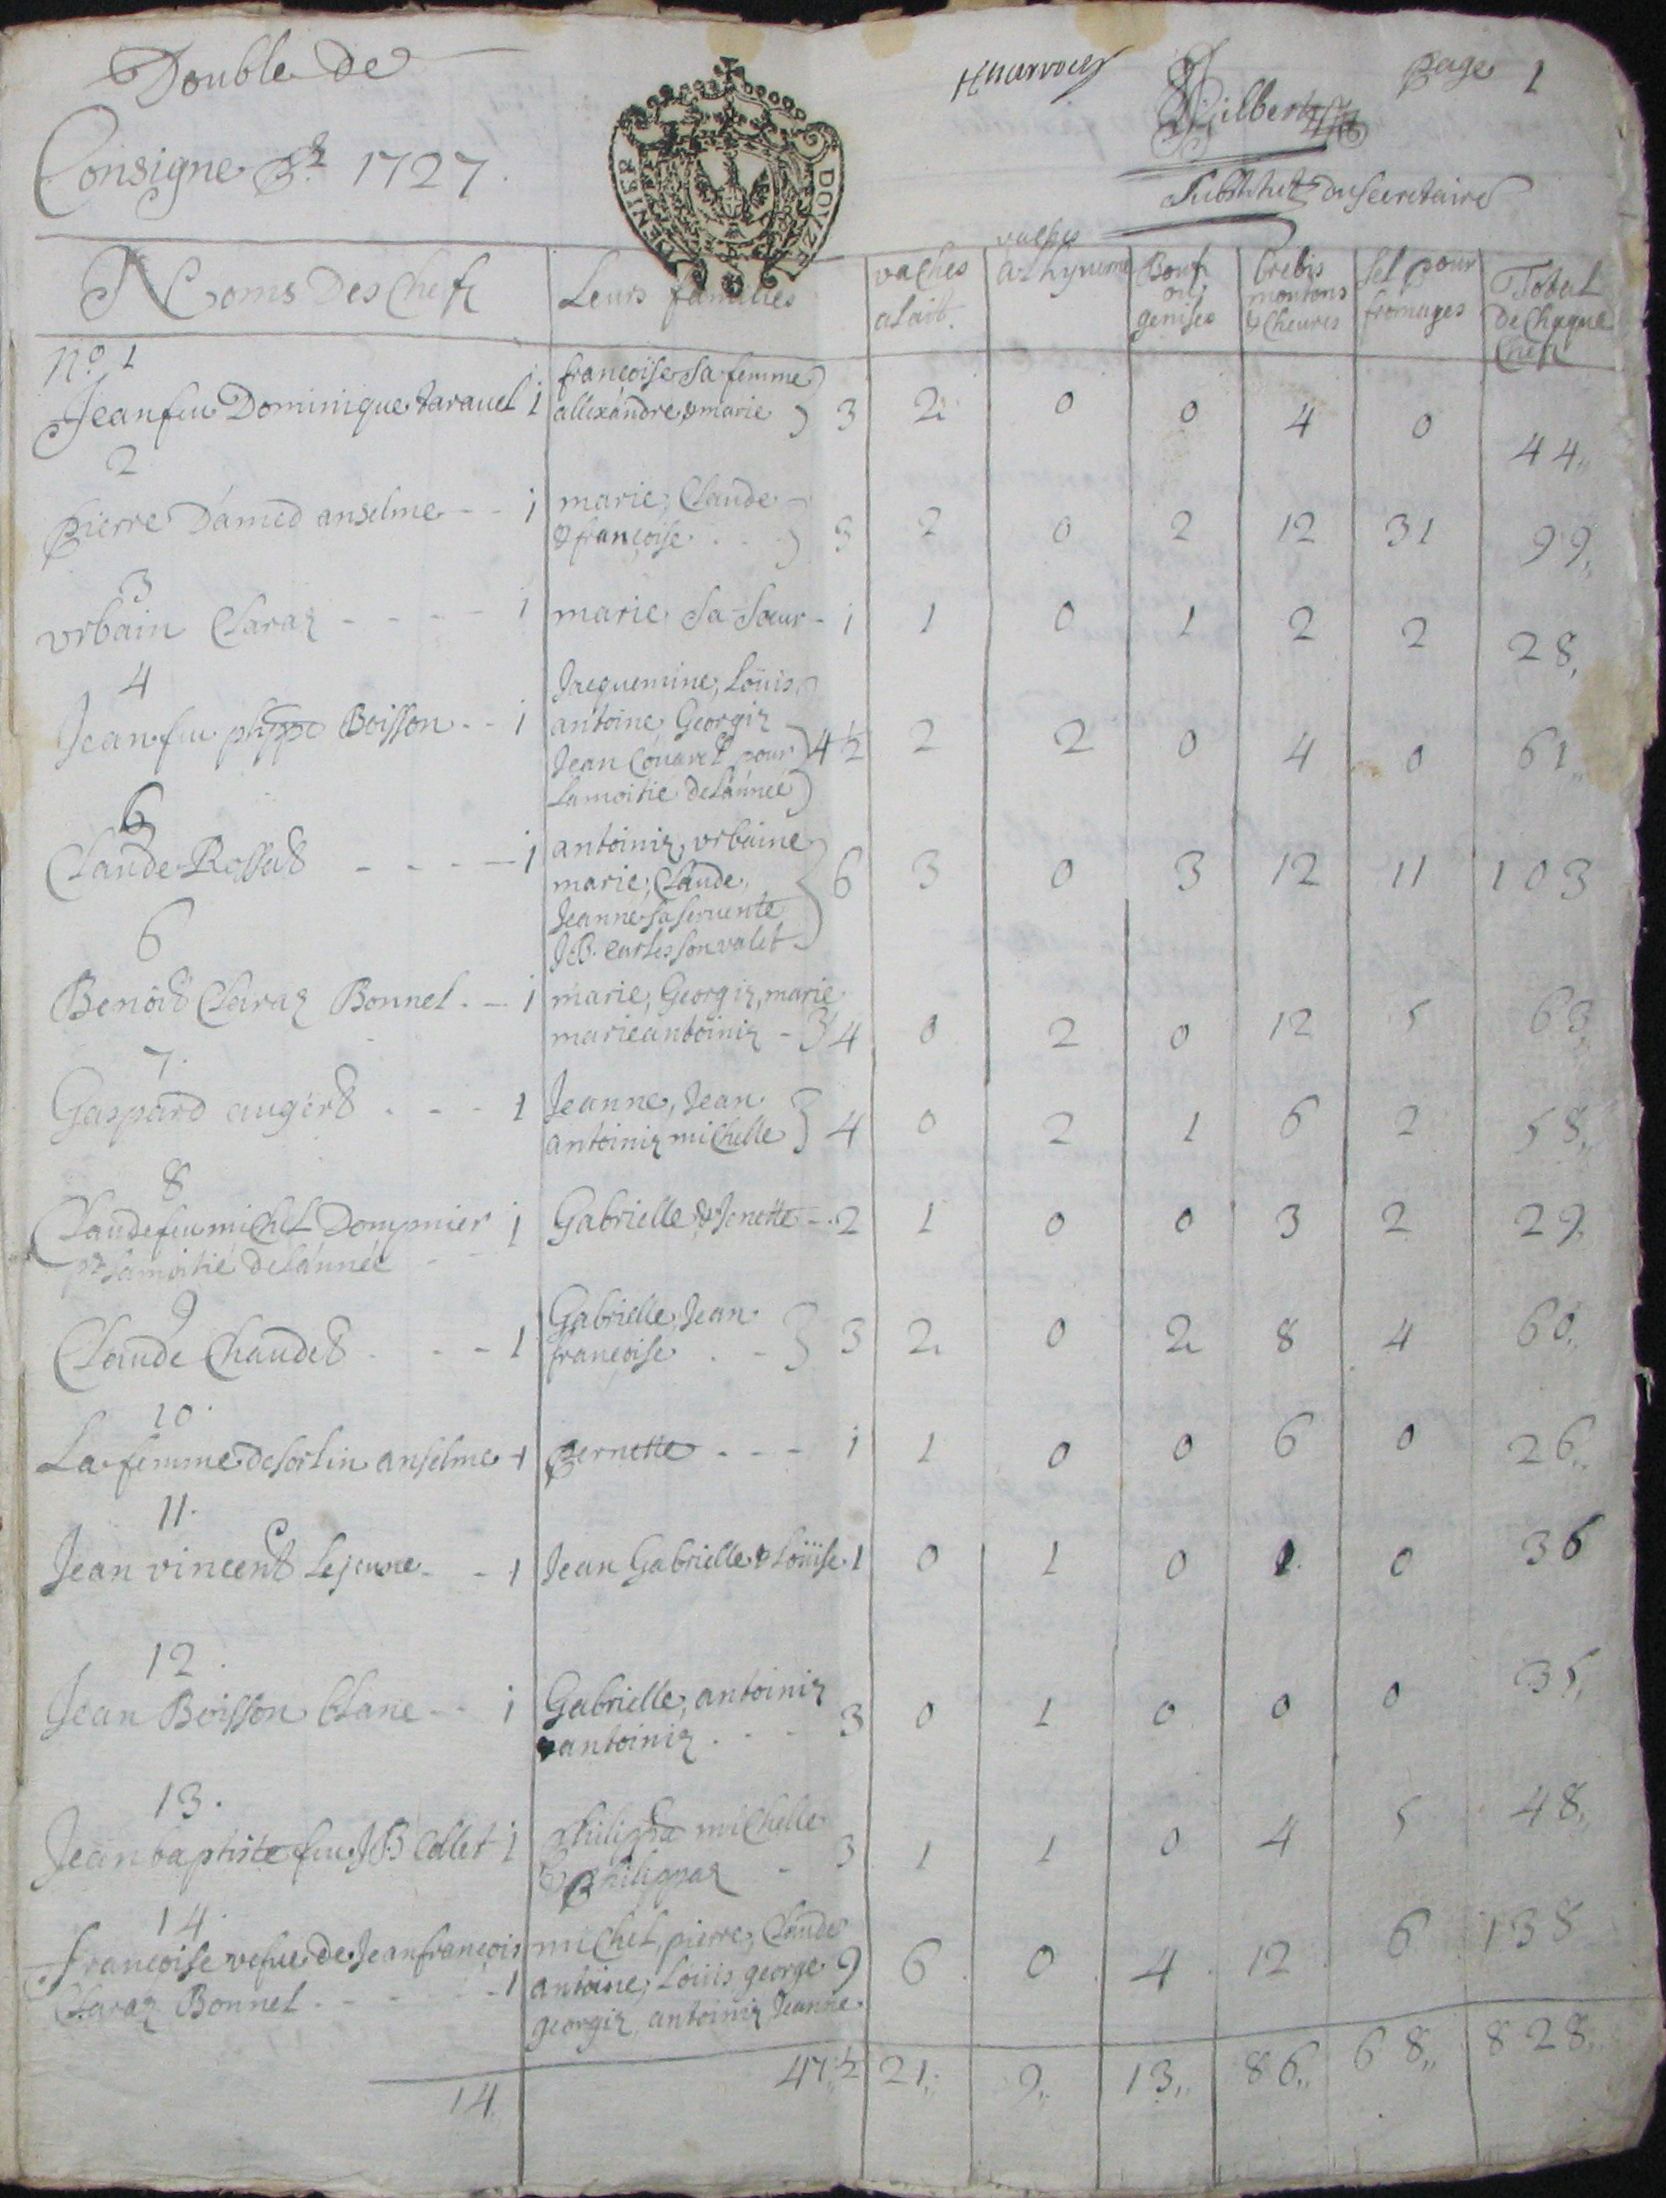 Double de
page 1
Gilbert
Consigne pr 1727.
DENIER DOUZE
Substitut du secretaire
Noms Des Chefs | Leurs familles | vaches a lait. | vaches a thyueme | Boufs ou genises | brebis moutons & Cheures | sel pour fromages | Total De Chaque Chefs
No. 1
françoise sa femme
Jean feu Dominique tarauel 1 | allexandre & marie 3 | 2 | 0 | 0 | 4 | 0 | 44
2
marie, Claude
pierre Damed anselme - - 1 | & françoise . . 3 | 2 | 0 | 2 | 12 | 31 | 99
3
vrbain Claraz - - - - 1 | marie sa sœur - 1 | 1 | 0 | 1 | 2 | 2 | 28
4
Jacquemine, Loüis,
Jean feu phppe Boisson - - 1 | antoine Georgiz
Jean Couaret pour 4 ½ | 2 | 2 | 0 | 4 | 0 | 61
La moitié de L'année
6
antoiniz, vrbaine
Claude Rossat - - - - 1 | marie, Claude, 6 | 3 | 0 | 3 | 12 | 11 | 103
Jeanne sa seruente
JB. Carles son valet
6
Benoit Claraz Bonnel . - 1 | marie, Georgiz, marie
marie antoiniz - 4 | 0 | 2 | 0 | 12 | 5 | 63
7.
Gaspard augert . - - 1 | Jeanne, Jean
antoiniz michelle 4 | 0 | 2 | 1 | 6 | 2 | 58
8
Claude feu michel Dompnier 1 | Gabrielle & Jenette - 2 | 1 | 0 | 0 | 3 | 2 | 29
pr La moitié de L'année -
9
Gabrielle, Jean
Claude Chaudet . - - 1 | françoise . - 3 | 2 | 0 | 2 | 8 | 4 | 60
10.
La femme de sorlin anselme 1 | pernette . - - 1 | 1 | 0 | 0 | 6 | 0 | 26
11.
Jean vincent Lejeune - - 1 | Jean Gabrielle & Loüise 1 | 0 | 1 | 0 | 1 | 0 | 36
12.
Jean Boisson Clane - - 1 | Gabrielle, antoiniz
& antoiniz . - - 3 | 0 | 1 | 0 | 0 | 0 | 35
13.
Jean baptiste feu JB Collet 1 | philippa michelle
& philippaz - 3 | 1 | 1 | 0 | 4 | 5 | 48
14.
françoise vefue de Jean françois | michel, pierre, Claude
Claraz Bonnel . - - - 1 | antoine, Loüis george 9 | 6 | 0 | 4 | 12 | 6 | 138
georgiz, antoiniz Jeanne
14. | 47 ½ | 21 | 9 | 13 | 86 | 68 | 828